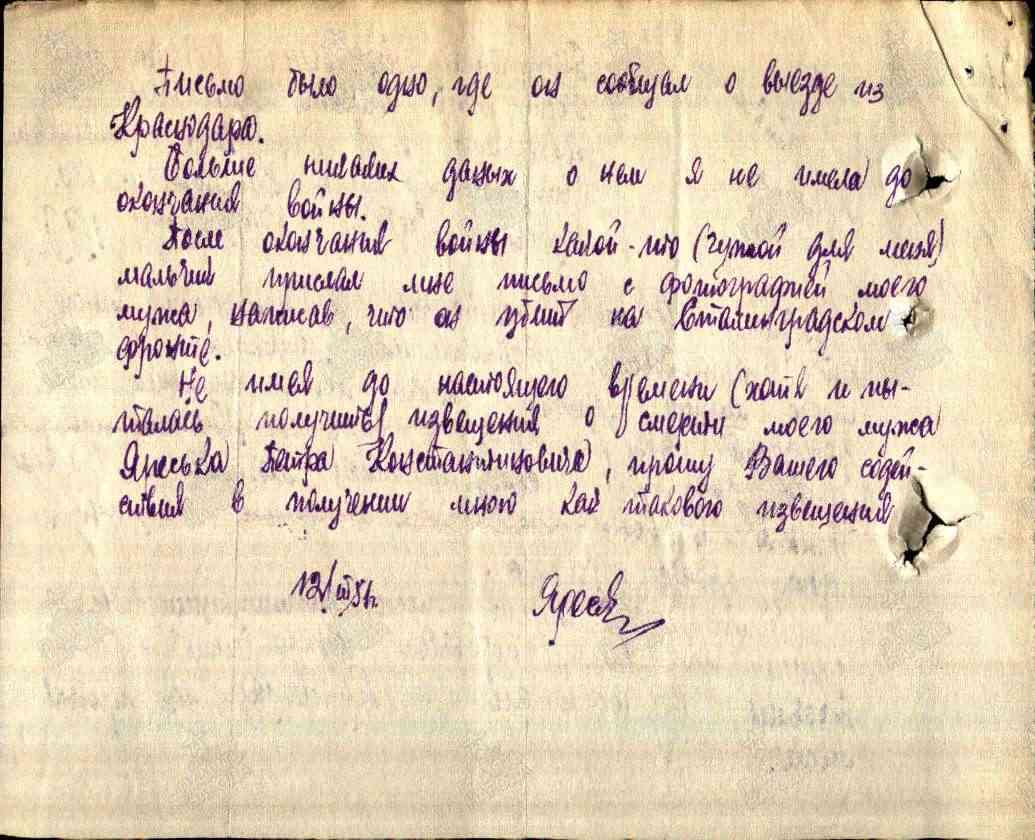 Письмо было одно, где он сообщал о выезде из
Краснодара.
Больше никаких даных о нем я не имела до
окончания войны.
После окончания войны какой-то (чужой для меня)
мальчик прислал мне письмо с фотографией моего
мужа, написав, что он убит на Сталинградском
фронте.
Не имея до настоящего времени (хотя и пы-
талась получить) извещения о смерти моего мужа
Петра Константиновича, прошу Вашего содей-
ствия в получении мною как такового извещения
12/III